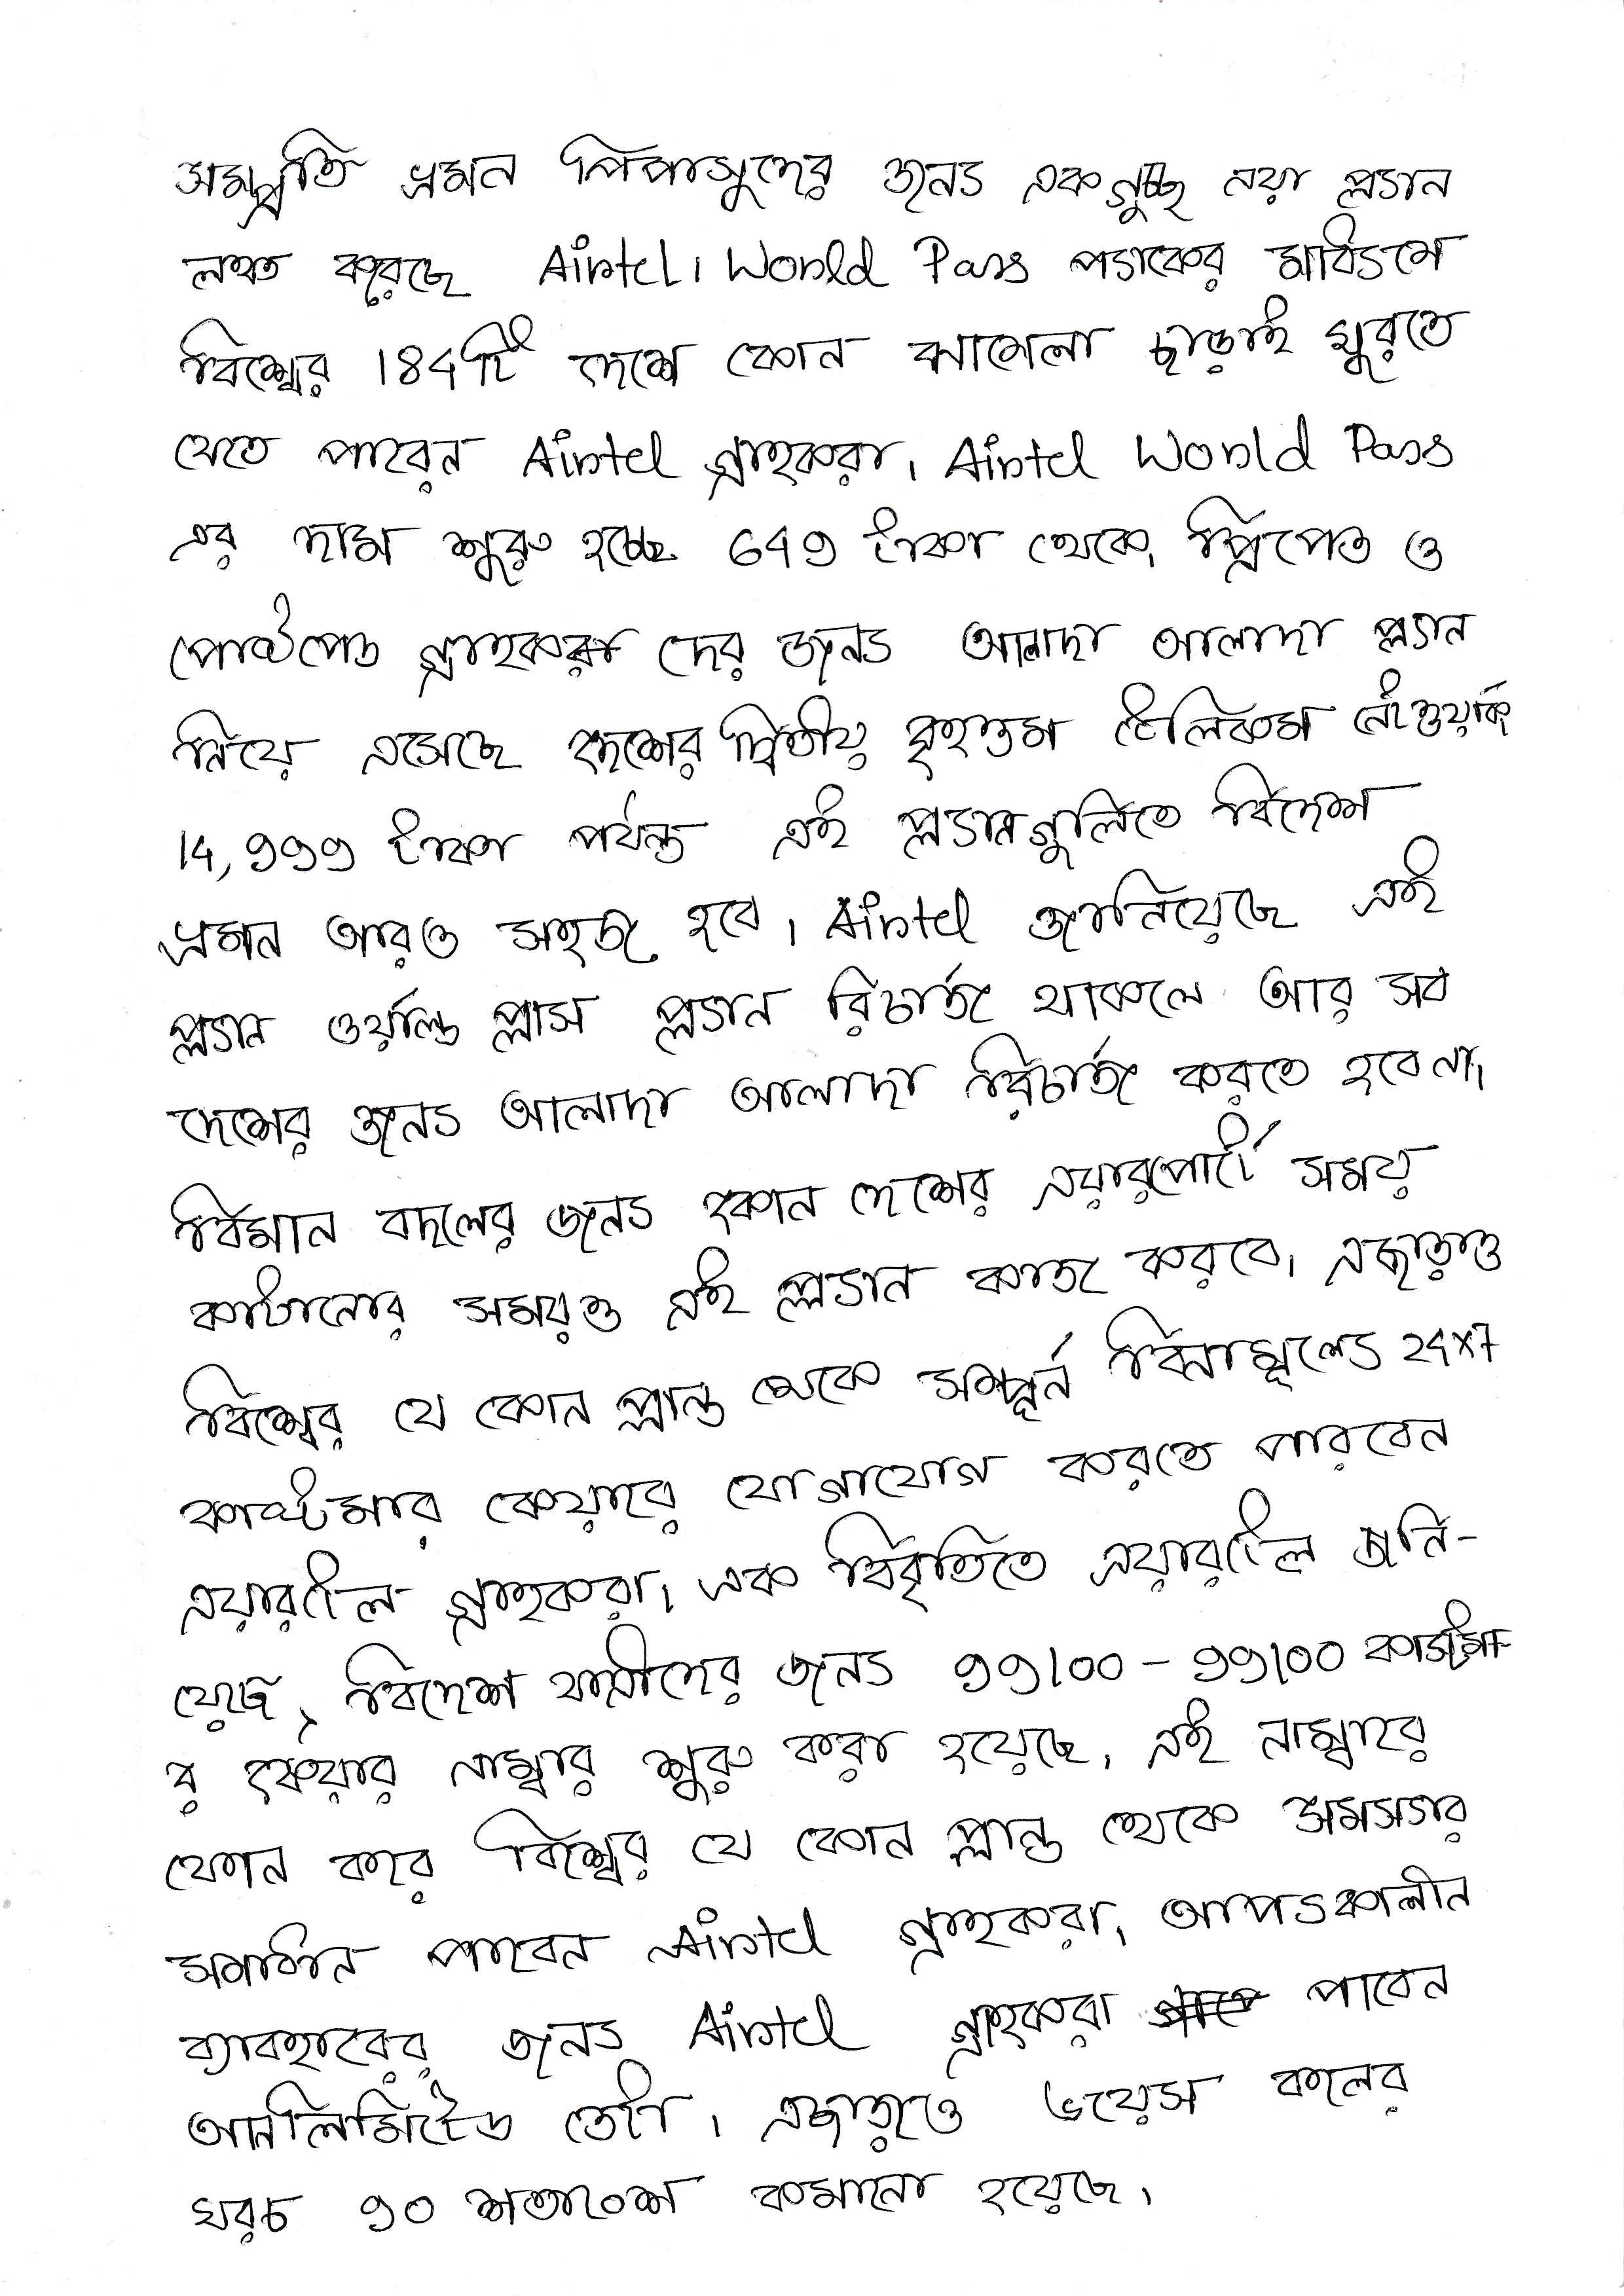 সমপ্রতি ভ্রমন পিপাসুদের জন্য একগুচ্ছ নয়া প্ল্যান
লঞ্চ করেছে Airtel। World Pass প্যাকের মাধ্যমে
বিশ্বের 184টি দেশে কোন ঝামেলা ছাড়াই ঘুরতে
যেতে পারেন Airtel গ্রাহকরা। Airtel World Pass
এর দাম শুরু হচ্ছে 649 টাকা থেকে। প্রিপেড ও
পোষ্টপেড গ্রাহকরা দের জন্য আলাদা আলাদা প্ল্যান
নিয়ে এসেছে দেশের দ্বিতীয় বৃহত্তম টেলিকম নেটওয়ার্ক
14,999 টাকা পর্যন্ত এই প্ল্যানগুলিতে বিদেশ
ভ্রমন আরও সহজ হবে। Airtel জানিয়েছে এই
প্ল্যান ওর্য়াল্ড প্লাস প্ল্যান রিচার্জ থাকলে আর সব
দেশের জন্য আলাদা আলাদা রিচার্জ করতে হবে না।
বিমান বদলের জন্য কোন দেশের এয়ারপোর্টে সময়
কাটানোর সময়ও এই প্ল্যান কাজ করবে। এছাড়াও
বিশ্বের যে কোন প্লান্ত থেকে সম্পূর্ন বিনামূল্যে 24x7
কাষ্টমার কেয়ারে যোগাযোগ করতে পারবেন
এয়ারটেল গ্রাহকরা। এক বিবৃতিতে এয়ারটেল জানি-
য়েছে, বিদেশ যাত্রীদের জন্য 99100-99100 কাস্টমা-
র কেয়ার নাম্বার শুরু করা হয়েছে। এই নাম্বারে
ফোন করে বিশ্বের যে কোন প্লান্ত থেকে সমস্যার
সমাধান পাবেন Airtel গ্রাহকরা। আপৎকালীন
ব্যাবহারের জন্য Airtel গ্রাহকরা পাবেন
আনলিমিটেড ডেটা। এছাড়াও ভয়েস কলের
খরচ ৯০ শতাংশ কমানো হয়েছে।